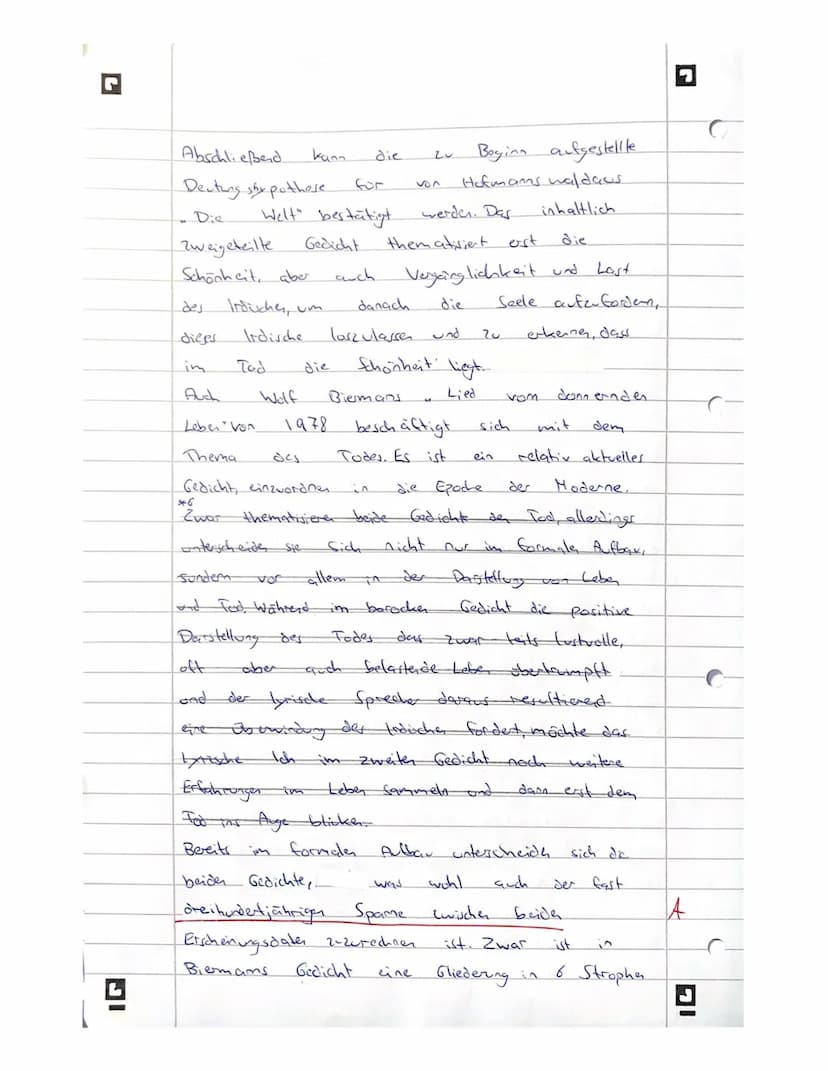 Abschließend kann die zu Beginn aufgestellte
Deutungshypothese für von Hofmannswaldaus
„Die Welt" bestätigt werden. Das inhaltlich
zweigeteilte Gedicht thematisiert erst die
Schönheit, aber auch Vergänglichkeit und Last
des Irdischen, um danach die Seele aufzufordern,
dieses Irdische loszulassen und zu erkennen, dass
im Tod die Schönheit liegt.
Auch Wolf Biermans „Lied vom donnernden
Leben" von 1978 beschäftigt sich mit dem
Thema des Todes. Es ist ein relativ aktuelles
Gedicht, einzuordnen in die Epoche der Moderne.
*6
Zwar thematisieren beide Gedichte den Tod, allerdings
unterscheiden sie sich nicht nur im formalen Aufbau,
sondern vor allem in der Darstellung von Leben
und Tod. Während im barocken Gedicht die positive
Darstellung des Todes das zwar teils lustvolle,
oft aber auch belastende Leben übertrumpft
und der lyrische Sprecher daraus resultierend
eine Überwindung des Irdischen fordert, möchte das
Lyrische Ich im zweiten Gedicht noch weitere
Erfahrungen im Leben sammeln und dann erst dem
Tod ins Auge blicken.
Bereits im formalen Aufbau unterscheiden sich die
beiden Gedichte, was wohl auch der fast
dreihundertjährigen Spanne zwischen beiden
A
Erscheinungsdaten zuzurechnen ist. Zwar ist in
Biermans Gedicht eine Gliederung in 6 Strophen